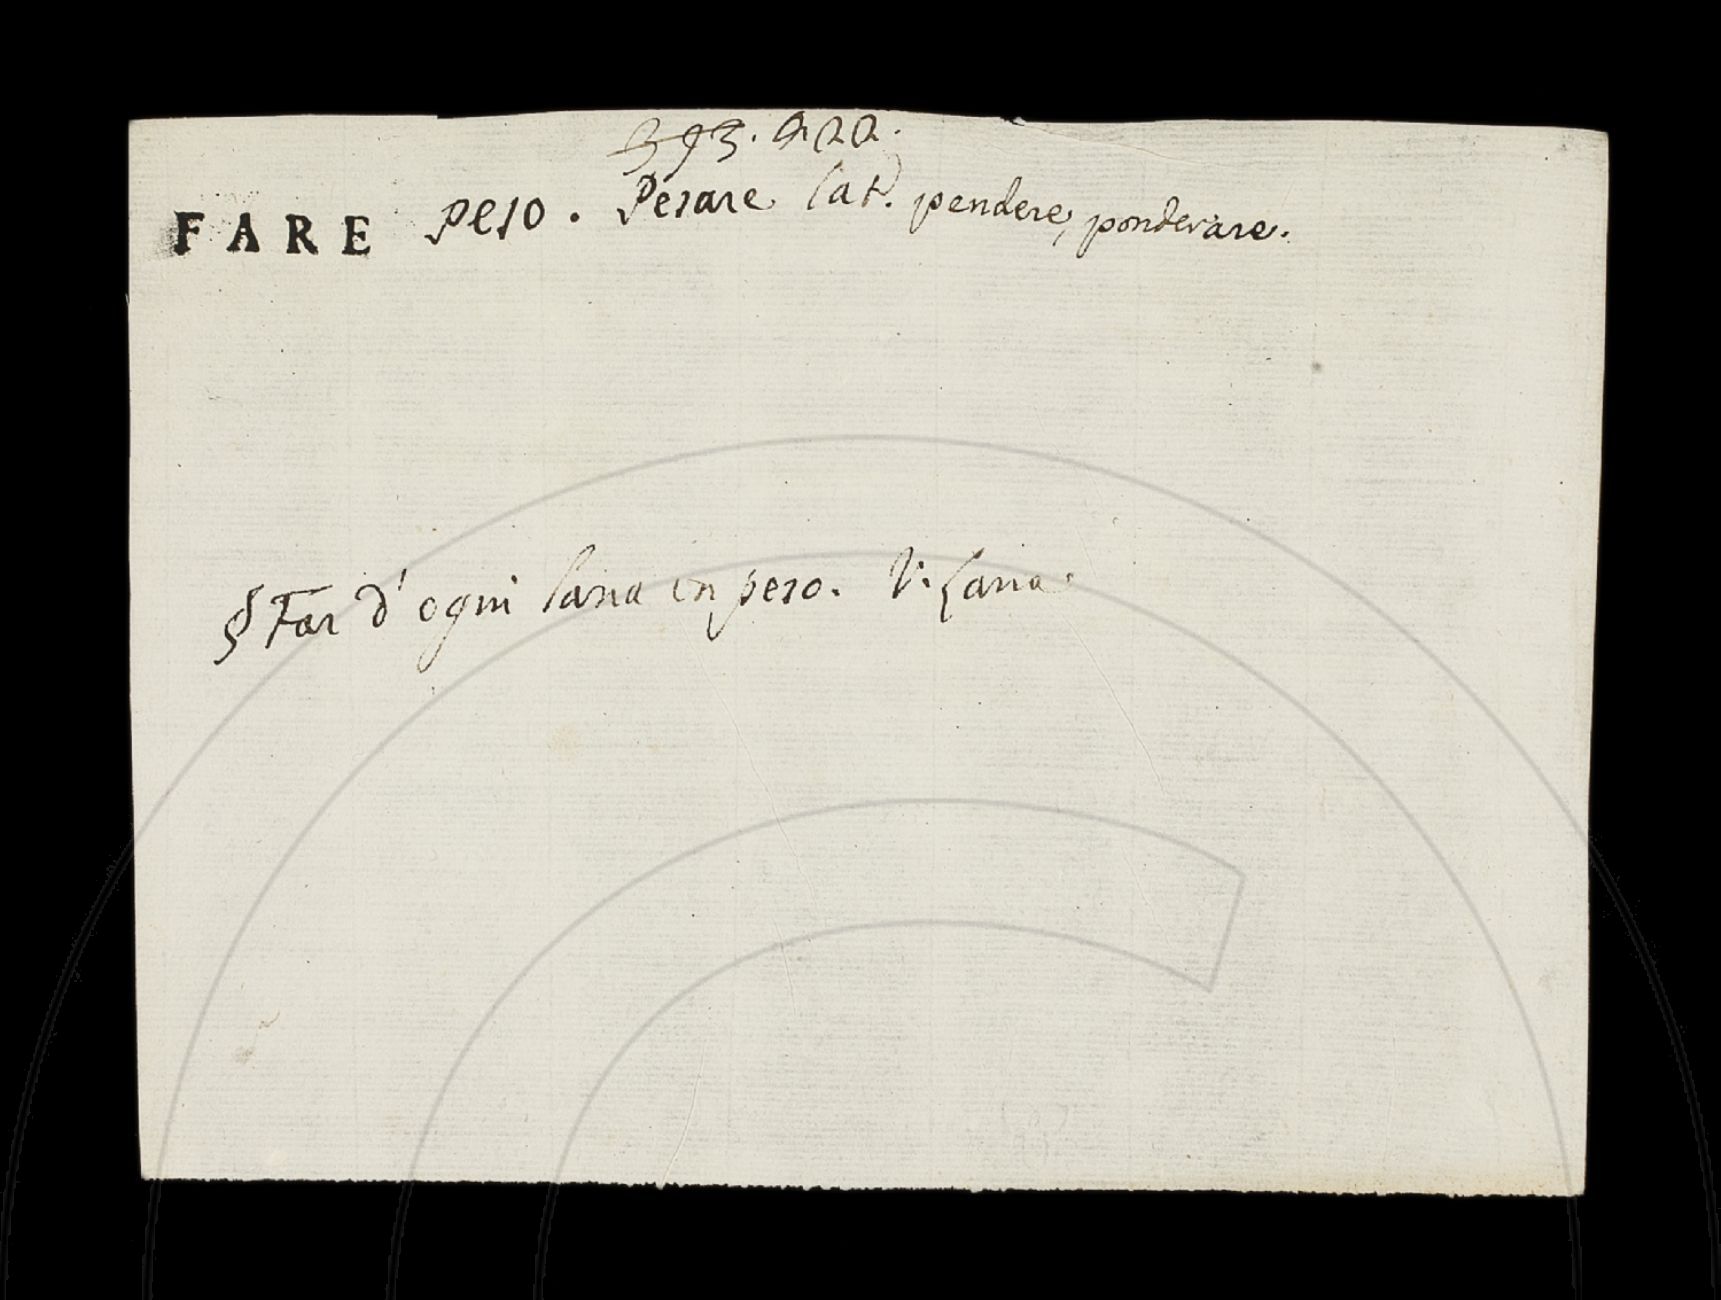 393. 422.
FARE peso. Pesare lat. pendere, ponderare.
§ Far d' ogni lana un peso. V. Lana.